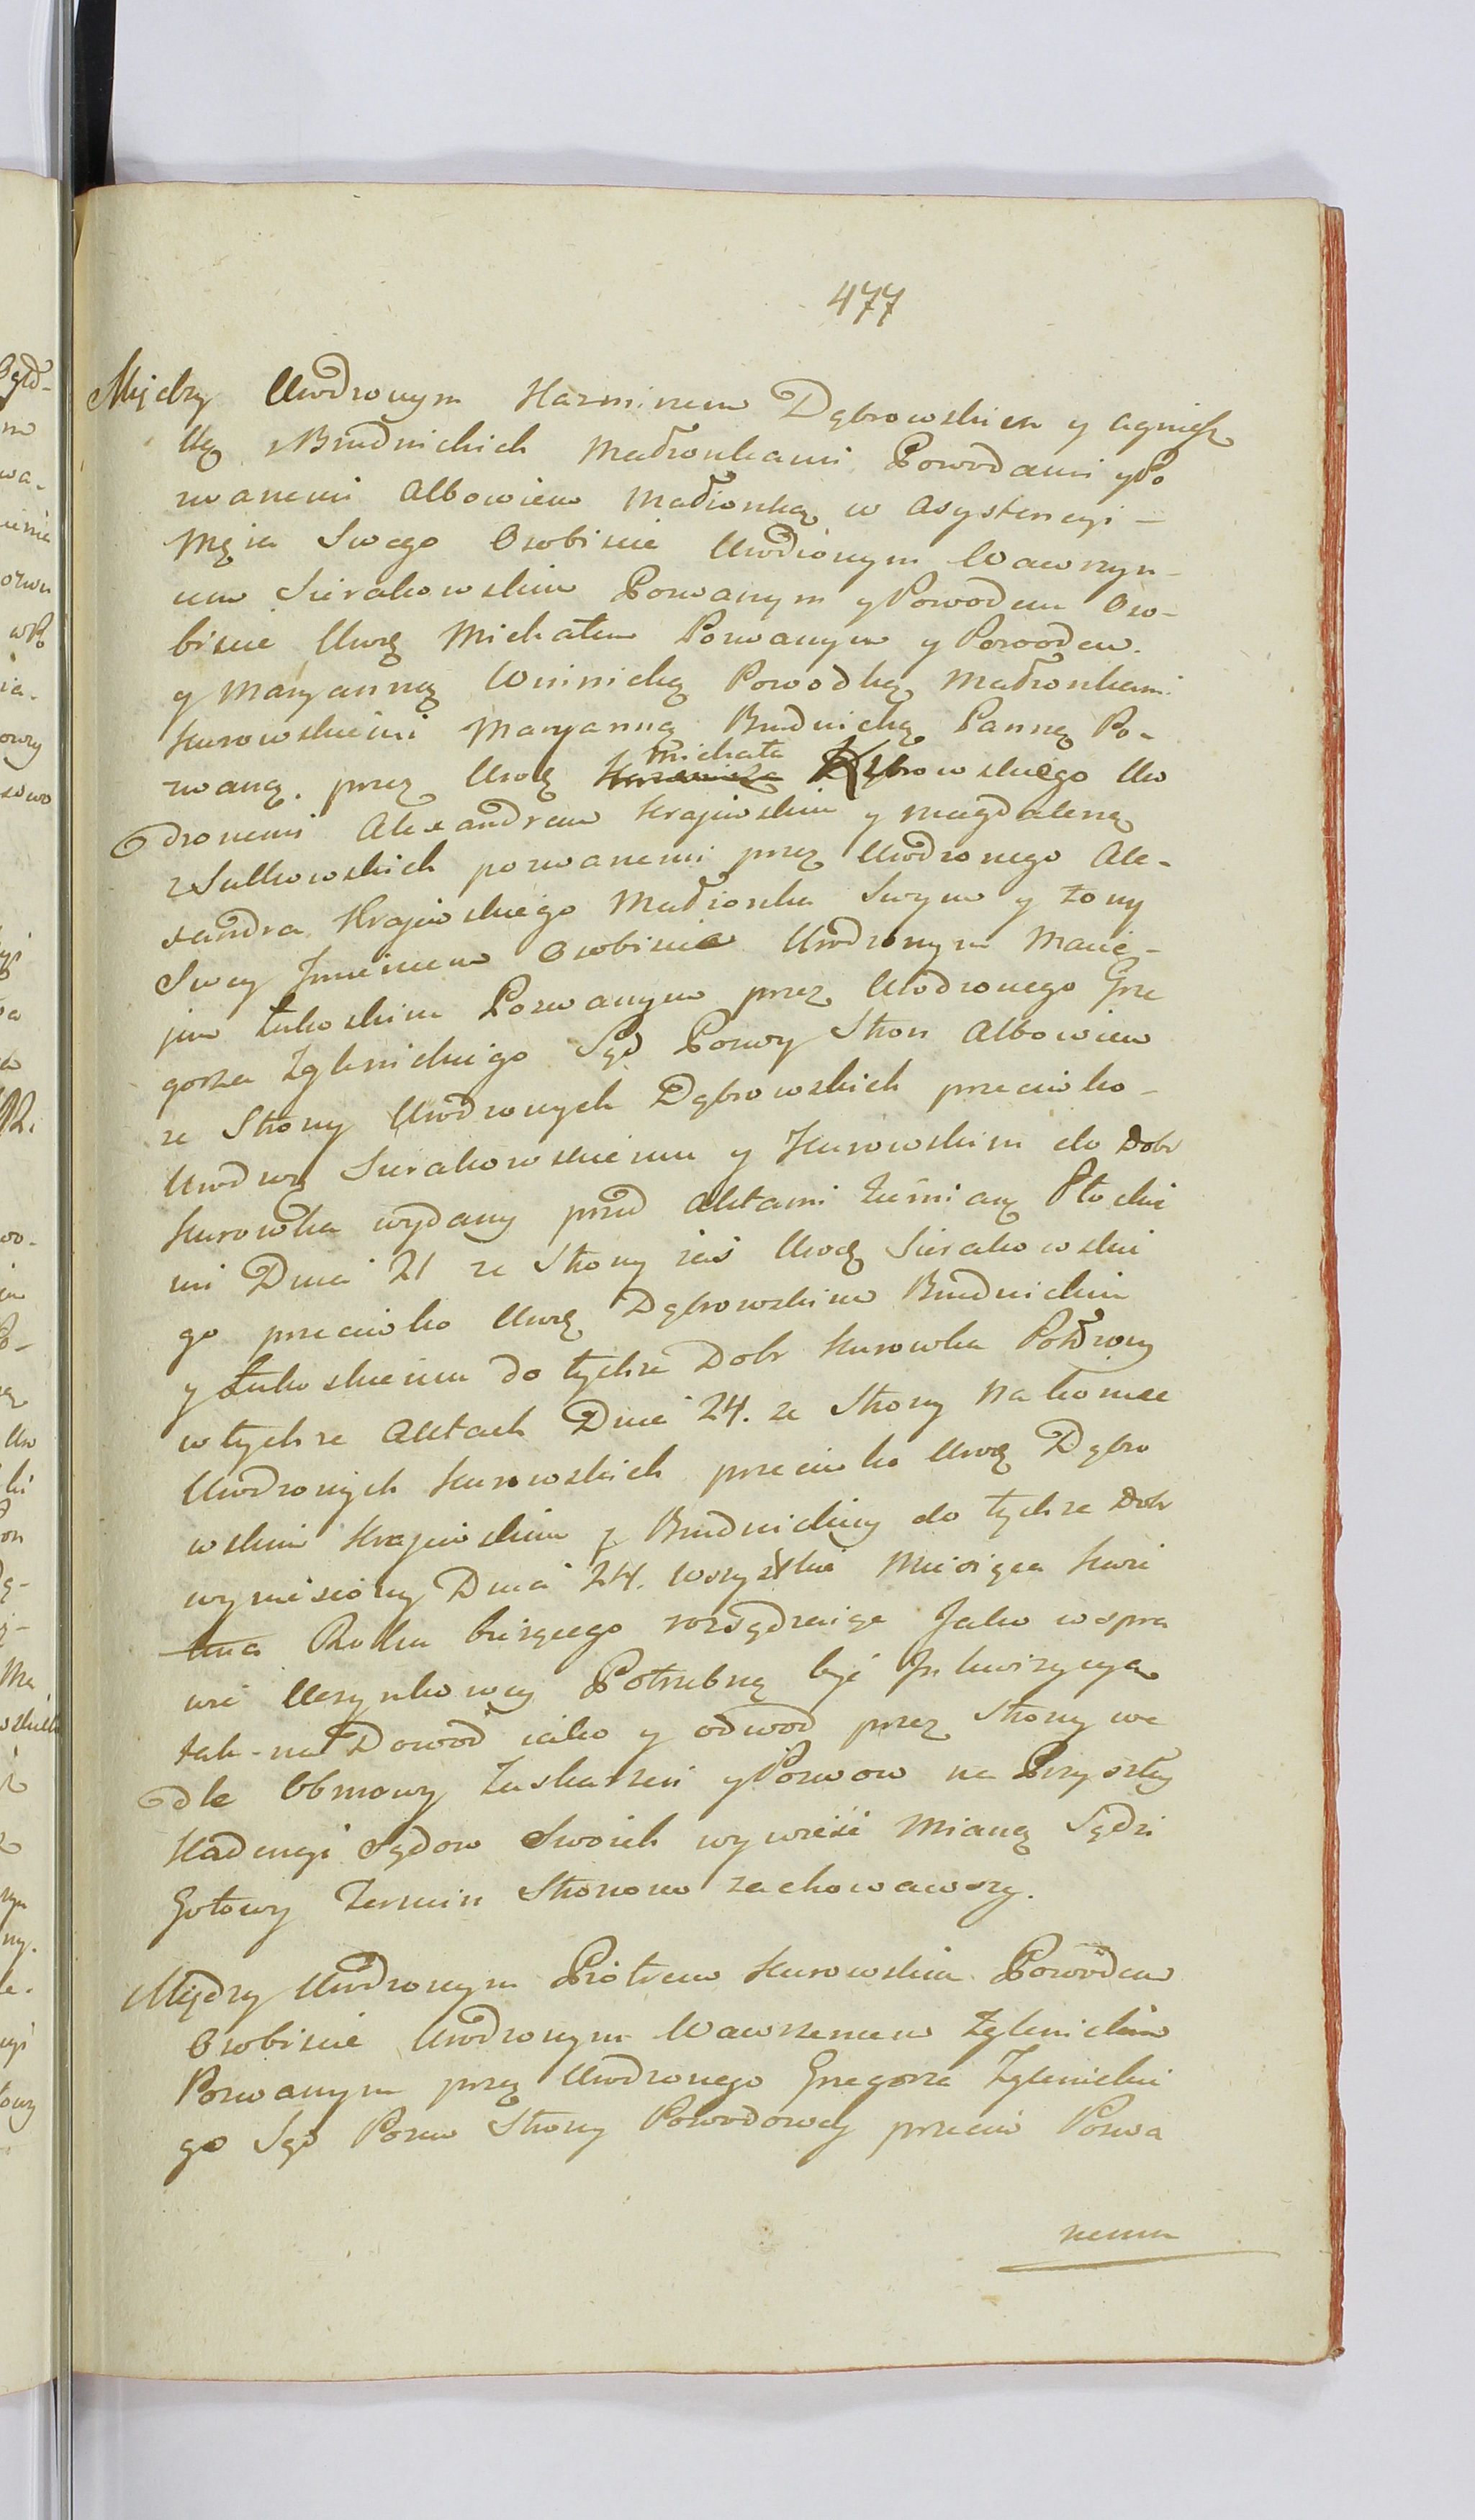 477
Między Urodzonym Kazmirem Dąbrowskim y Agnisz
ką z Brudnickich Małżonkami Powodami y Po
zwanemi Albowiem Małżonką w Asystencyi –
Męża Swego Osobiscie Urodzonym Wawrzyn-
cem Sierakowskim Pozwanym y Powodem Oso-
biscie Urodz Michałem Pozwanym y Powodem.
y Maryanną Winnicką Powodką Małżonkami
Kurowskiemi Maryanną Brudnicką Panną Po-
zwaną. przez Urodz Michała Kurowskiego Uro
dzonemi Alexandrem Krajewskim y Magdaleną
z Sulkowskich pozwanemi przez Urodzonego Ale-
xandra Krajewskiego Małżonka Swym y Żony
Swey Jmieniem Osobiscie Urodzonym Macie-
jem Łukoskim Pozwanym przez Urodzonego Grze
gorza Zglenickiego Sąd Pozwy Stron Albowiem
ze Strony Urodzonych Dąbrowskich przeciwko –
Urodz Sierakowskiemu y Kurowskim do Dobr
Kurowka wydany przed Aktami Ziemi Płocki
mi Dnia 21 ze Strony zaś Urodz Sierakowski
go przeciwko Urodz Dąbrowskim Brudnickim
y Łukoskiemu do tychże Dobr Kurowka Położony
w tychże Aktach Dnia 24. ze Strony Nakoniec
Urodzonych Kurowskich przeciwko Urodz Dąbro
wskim Krajewskim y Brudnickiey do tychże Dobr
wyniesiony Dnia 24. wszystkie Miesiąca Kwie
tnia Roku bieżącego rozsądzaiąc Jako w spra
wie Uczynkowey Potrzebną być Inkwizycyą
tak na Dowod iako y odwod przez Strony we
dle Obmowy Zaskarzeń y Pozwow na Przyszłey
Kadencyi Sądow Swoich wywieść Mianą Sądzi
Gotowy Termin Stronom zachowawszy.
Między Urodzonym Piotrem Kurowskim Powodem
Osobiscie Urodzonym Wawrzencem Zglenickim
Pozwanym przez Urodzonego Grzegorza Zglenicki
go Sąd Pozew Strony Powodowey przeciw Pozwa
nemu